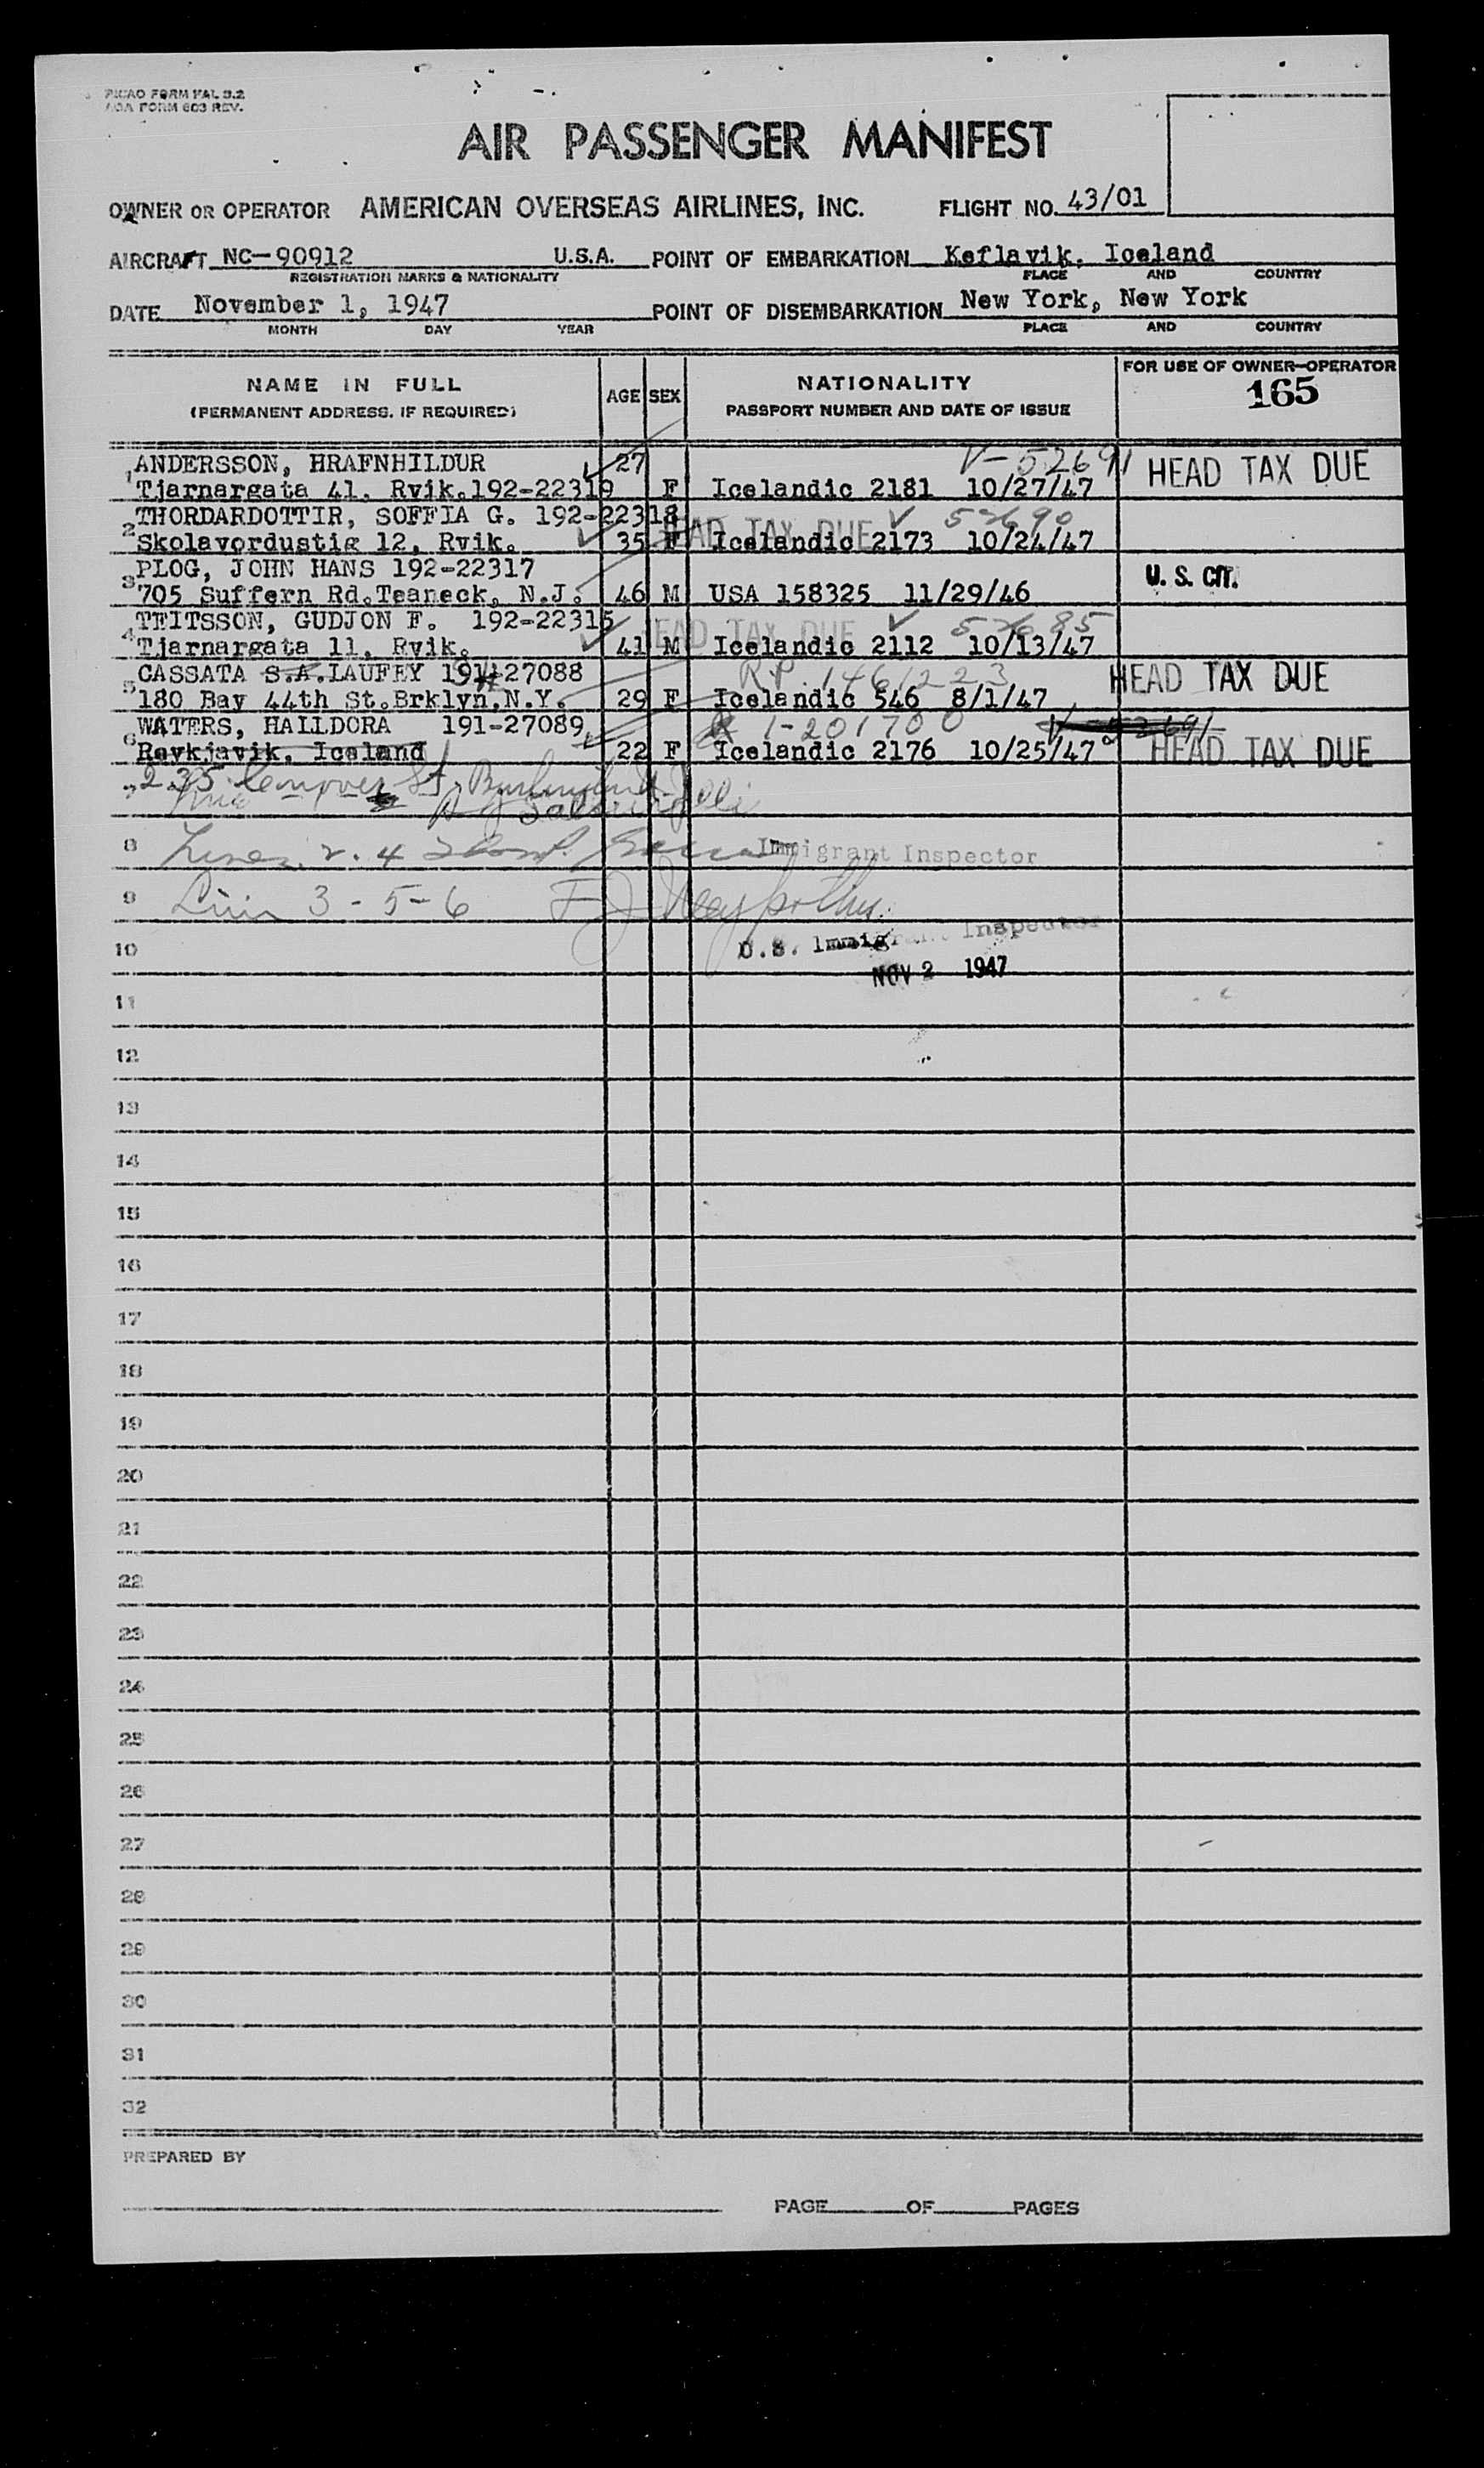 PICAO FORM FAL 3.2
AOA FORM 603 REV.
AIR PASSENGER MANIFEST
OWNER OR OPERATOR AMERICAN OVERSEAS AIRLINES, INC. FLIGHT NO. 43/01
AIRCRAFT NC-90912 U.S.A. POINT OF EMBARKATION Keflavik, Iceland
REGISTRATION MARKS & NATIONALITY PLACE AND COUNTRY
DATE November 1, 1947 POINT OF DISEMBARKATION New York, New York
MONTH DAY YEAR PLACE AND COUNTRY
NAME IN FULL AGE SEX NATIONALITY FOR USE OF OWNER-OPERATOR
(PERMANENT ADDRESS, IF REQUIRED) PASSPORT NUMBER AND DATE OF ISSUE 165
1 ANDERSSON, HRAFNHILDUR 27 V-52691 HEAD TAX DUE
Tjarnargata 41, Rvik.192-22319 F Icelandic 2181 10/27/47
2 THORDARDOTTIR, SOFFIA G. 192-22318 HEAD TAX DUE 52690
Skolavordustig 12, Rvik. 35 F Icelandic 2173 10/24/47
3 PLOG, JOHN HANS 192-22317 U.S. CIT.
705 Suffern Rd.Teaneck, N.J. 46 M USA 158325 11/29/46
4 TEITSSON, GUDJON F. 192-22315 HEAD TAX DUE 52685
Tjarnargata 11, Rvik. 41 M Icelandic 2112 10/13/47
5 CASSATA S.A.LAUFEY 191-27088 R.P. 1461223 HEAD TAX DUE
180 Bay 44th St.Brklyn,N.Y. 29 F Icelandic 546 8/1/47
6 WATERS, HALLDORA 191-27089 R 1-201700 V-52691
Reykjavik, Iceland 22 F Icelandic 2176 10/25/47 HEAD TAX DUE
7 235 St.
8 Lines 2. 4 Immigrant Inspector
9 Line 3-5-6
10 U.S. Immigrant Inspector
NOV 2 1947
11
12
13
14
15
16
17
18
19
20
21
22
23
24
25
26
27
28
29
30
31
32
PREPARED BY
PAGE OF PAGES